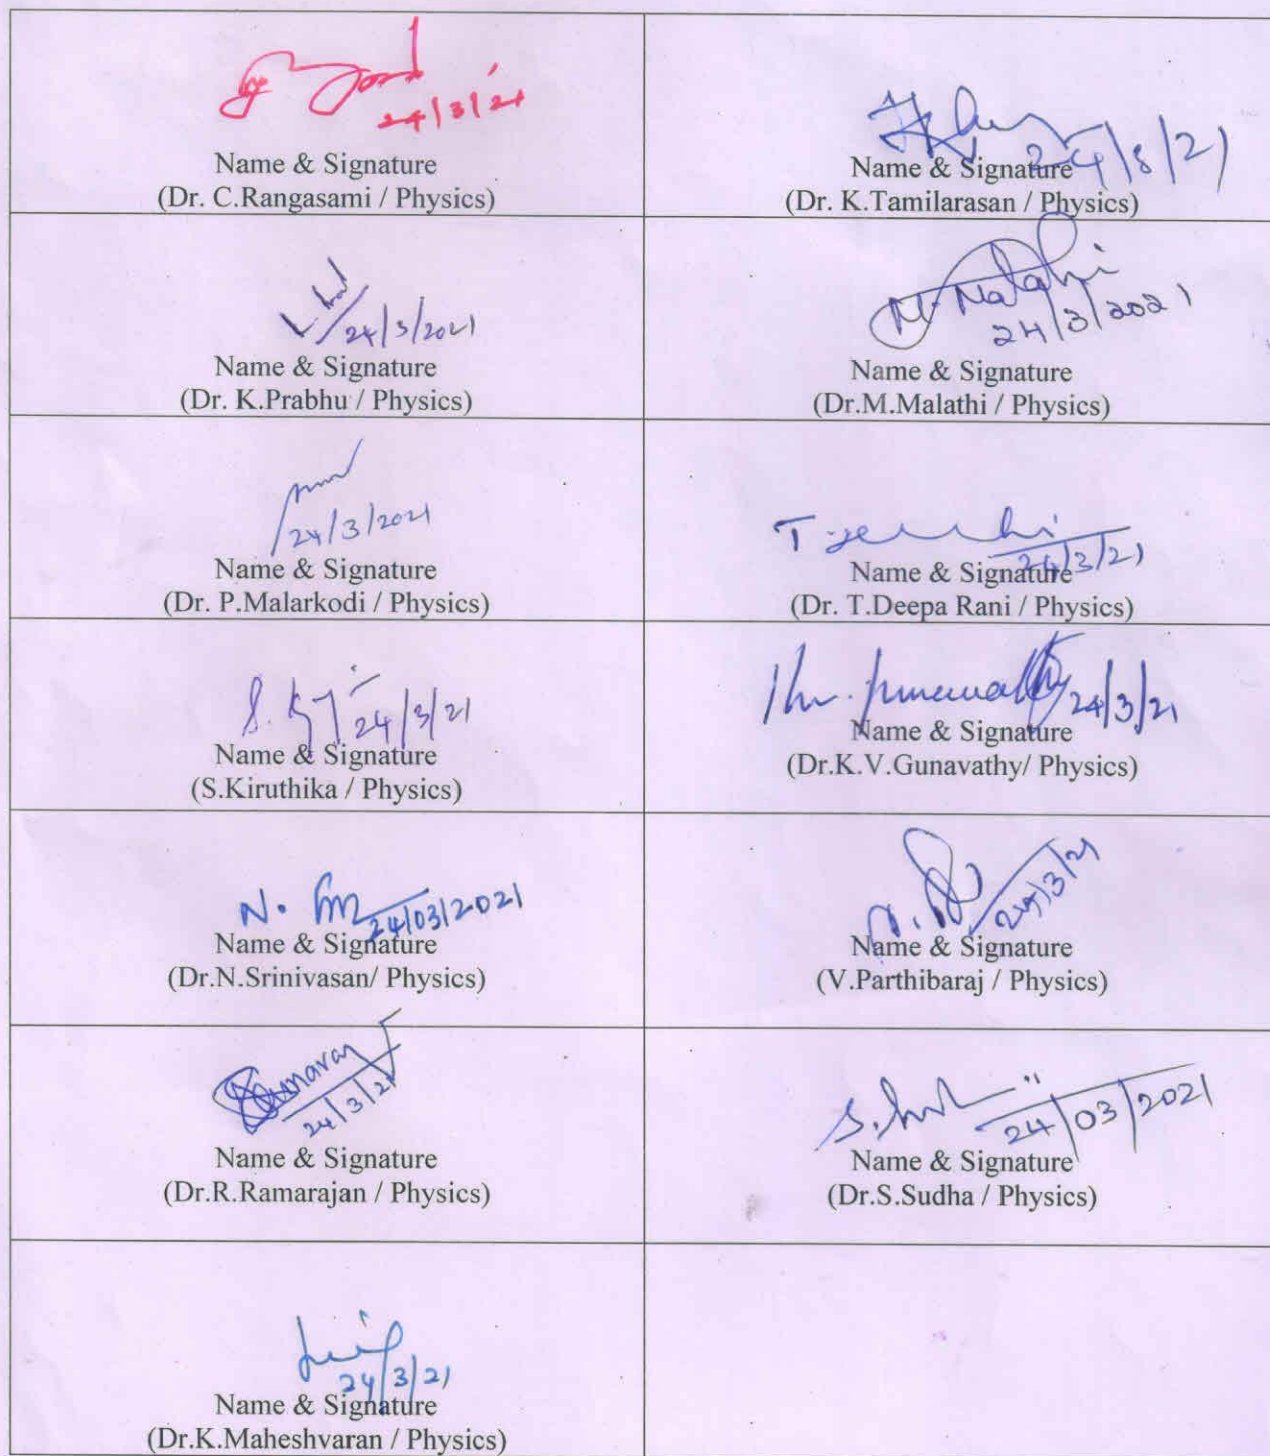 24/3/21
Name & Signature
(Dr. C.Rangasami / Physics)
24/3/21
Name & Signature
(Dr. K.Tamilarasan / Physics)
24/3/2021
Name & Signature
(Dr. K.Prabhu / Physics)
M. Malathi
24/3/2021
Name & Signature
(Dr.M.Malathi / Physics)
24/3/2021
Name & Signature
(Dr. P.Malarkodi / Physics)
24/3/21
Name & Signature
(Dr. T.Deepa Rani / Physics)
24/3/21
Name & Signature
(S.Kiruthika / Physics)
24/3/21
Name & Signature
(Dr.K.V.Gunavathy/ Physics)
24/03/2021
Name & Signature
(Dr.N.Srinivasan/ Physics)
24/3/21
Name & Signature
(V.Parthibaraj / Physics)
24/3/21
Name & Signature
(Dr.R.Ramarajan / Physics)
24/03/2021
Name & Signature
(Dr.S.Sudha / Physics)
24/3/21
Name & Signature
(Dr.K.Maheshvaran / Physics)